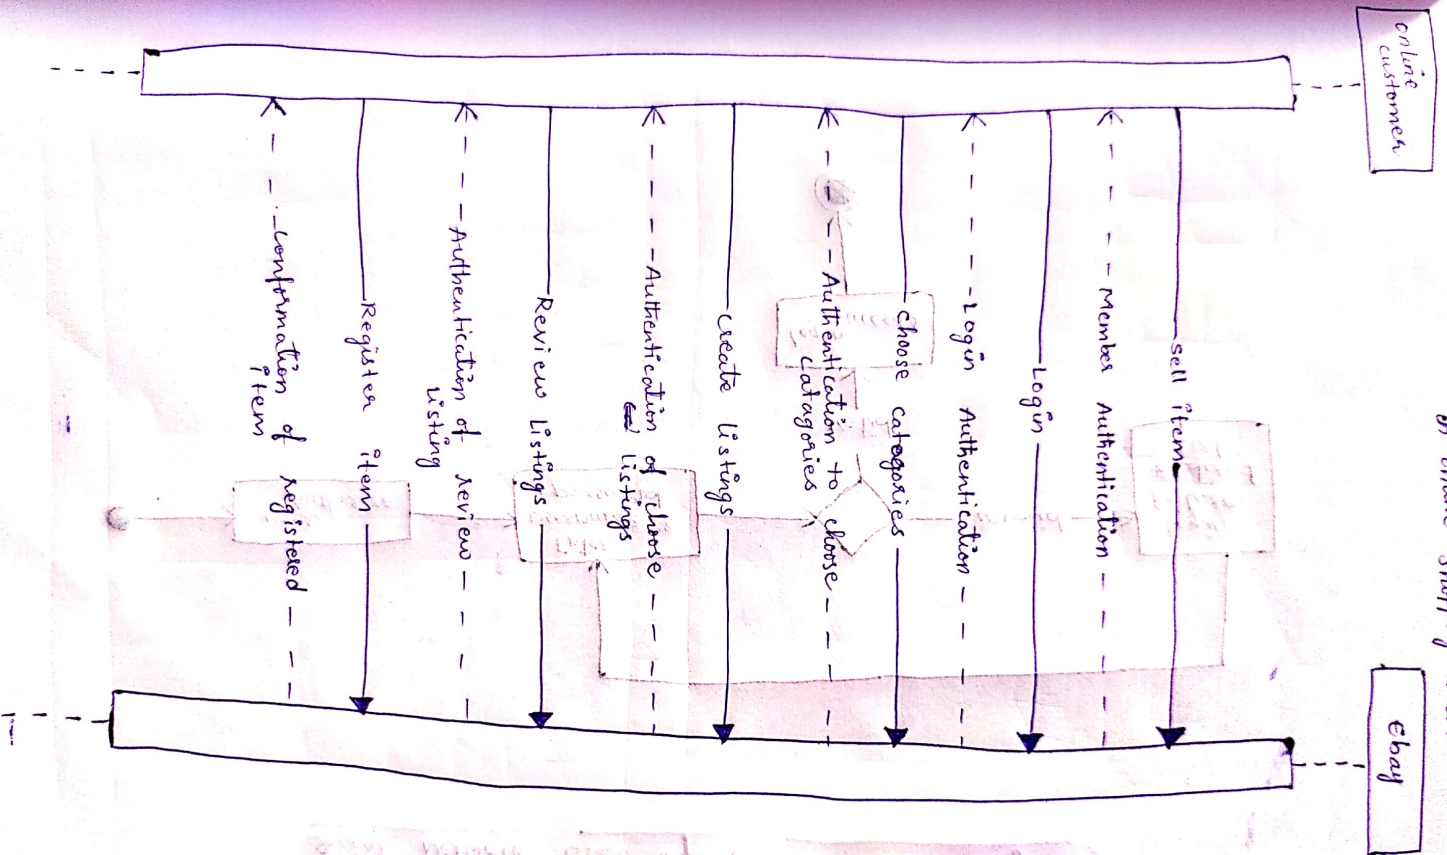 online
customer
Ebay
sell item
Member Authentication
Login
Login Authentication
choose categories
Authentication to choose
catagories
create listings
Authentication of choose
listings
Review Listings
Authentication of review
Listing
Register item
conformation of registered
item